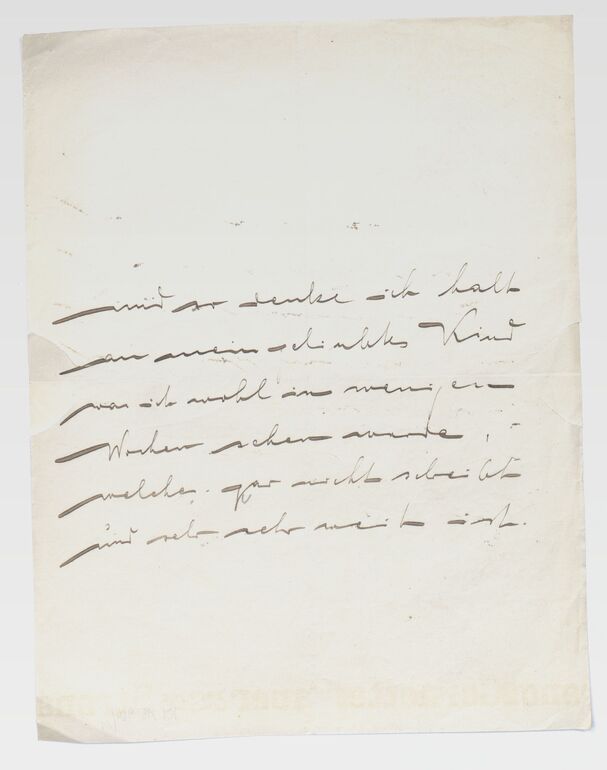 und so denke ich halt
an mein geliebtes Kind
ich wohl in wenigen
Wochen sehen werde,
welches gar nicht schreibt
und sehr sehr weit ist.